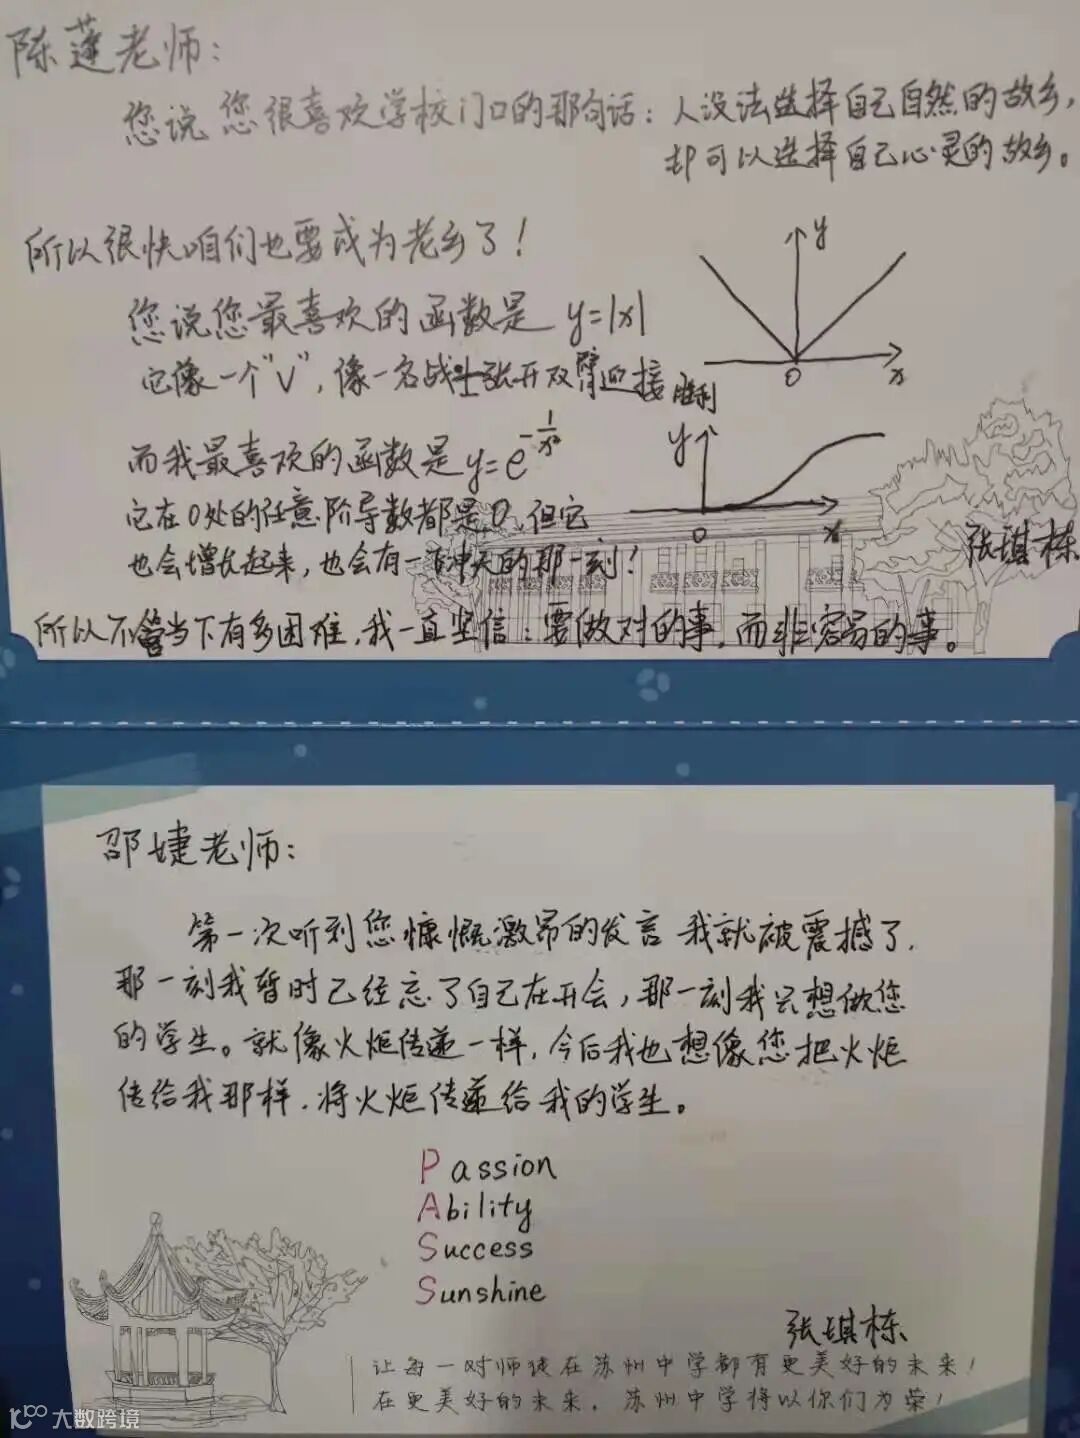 陈莲老师：
您说您很喜欢学校门口的那句话：人没法选择自己自然的故乡，
却可以选择自己心灵的故乡。
所以很快咱们也要成为老乡了！
y
您说您最喜欢的函数是 y=|x|
它像一个“V”，像一名战士张开双臂迎接胜利
0 x
而我最喜欢的函数是 y=e^{-1/x²}
y
它在0处的任意阶导数都是0，但它
0 x
张琪栋
也会增长起来，也会有一飞冲天的那一刻！
所以不管当下有多困难，我一直坚信：要做对的事，而非容易的事。
邵婕老师：
第一次听到您慷慨激昂的发言 我就被震撼了，
那一刻我暂时已经忘了自己在开会，那一刻我只想做您
的学生。就像火炬传递一样，今后我也想像您把火炬
传给我那样，将火炬传递给我的学生。
Passion
Ability
Success
Sunshine
张琪栋
让每一对师徒在苏州中学都有更美好的未来！
在更美好的未来，苏州中学将以你们为荣！
大数跨境